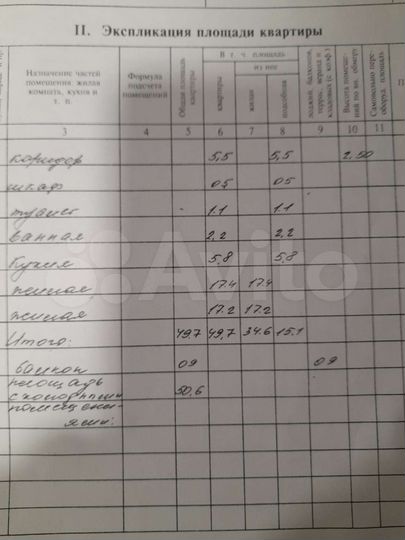 II. Экспликация площади квартиры
Назначение частей помещения: жилая комната, кухня и т. п.
Формула подсчета помещений
Общая площадь квартиры
В т. ч. площадь
из нее
квартиры
жилая
подсобная
лоджий, балконов, террас, веранд и кладовых (с коэф.)
Высота помещений по вн. обмеру
Самовольно переоборуд. площадь
3 4 5 6 7 8 9 10 11
коридор 5,5 5,5 2.50
шкаф 05 05
туалет 1.1 1.1
ванная 2,2 2,2
кухня 5,8 5,8
жилая 17.4 17.4
жилая 17.2 17.2
Итого: 49,7 49,7 34.6 15.1
балкон 09 09
площадь
с холодными 50,6
помещени-
ями:
Avito